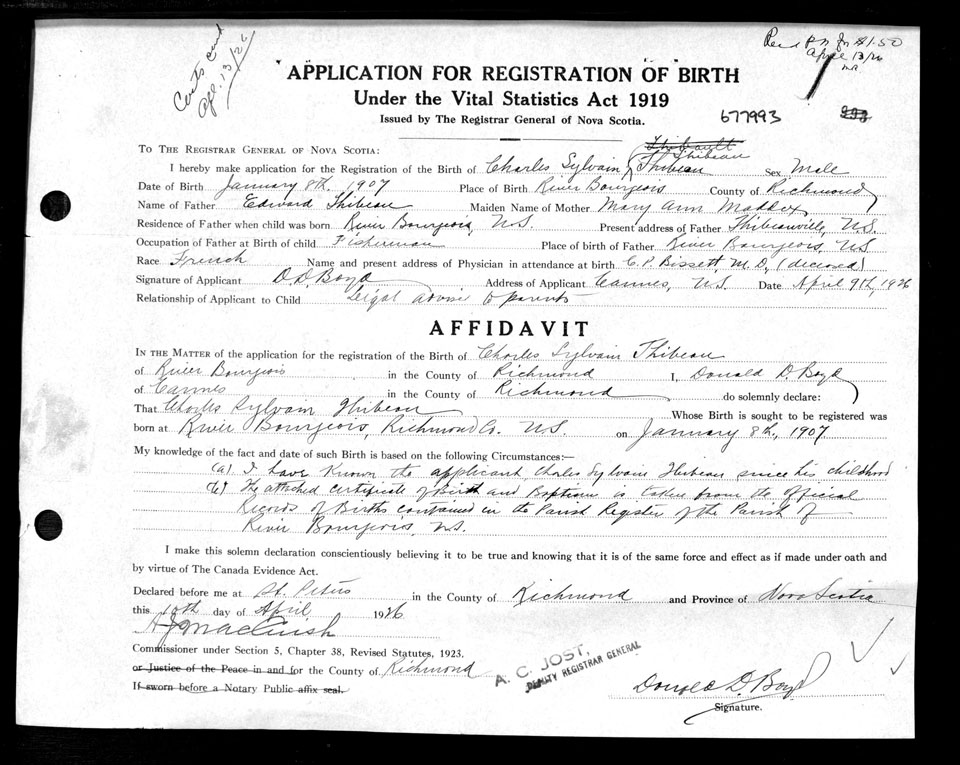 Certs and
Apl. 13/26
Rec'd P.N. for $1.50
April 13/26
ma
APPLICATION FOR REGISTRATION OF BIRTH
Under the Vital Statistics Act 1919
Issued by The Registrar General of Nova Scotia.
677993
Thibault
Thibeau
To The Registrar General of Nova Scotia:
I hereby make application for the Registration of the Birth of Charles Sylvain Thibeau Sex Male
Date of Birth January 8th, 1907 Place of Birth River Bourgeois County of Richmond
Name of Father Edward Thibeau Maiden Name of Mother Mary Ann Maddox
Residence of Father when child was born River Bourgeois, N.S. Present address of Father Thibeauville, N.S.
Occupation of Father at Birth of child Fisherman Place of birth of Father River Bourgeois, N.S.
Race French Name and present address of Physician in attendance at birth C. P. Bissett, M.D, (deceased)
Signature of Applicant D. D. Boyd Address of Applicant Cannes, N.S. Date April 9th, 1926
Relationship of Applicant to Child Legal advisor to parents
AFFIDAVIT
In the Matter of the application for the registration of the Birth of Charles Sylvain Thibeau
of River Bourgeois in the County of Richmond I, Donald D. Boyd
of Cannes in the County of Richmond do solemnly declare:
That Charles Sylvain Thibeau Whose Birth is sought to be registered was
born at River Bourgeois, Richmond Co. N.S. on January 8th, 1907
My knowledge of the fact and date of such Birth is based on the following Circumstances:—
(a) I have known the applicant Charles Sylvain Thibeau since his childhood
(b) The attached certificate of Birth and Baptism is taken from the official
Records of Births contained in the Parish Register of the Parish of
River Bourgeois, N.S.
I make this solemn declaration conscientiously believing it to be true and knowing that it is of the same force and effect as if made under oath and
by virtue of The Canada Evidence Act.
Declared before me at St. Peters in the County of Richmond and Province of Nova Scotia
this 10th day of April 1926
A J MacCuish
Commissioner under Section 5, Chapter 38, Revised Statutes, 1923.
or Justice of the Peace in and for the County of Richmond
If sworn before a Notary Public affix seal.
A. C. JOST,
DEPUTY REGISTRAR GENERAL
Donald D. Boyd
Signature.